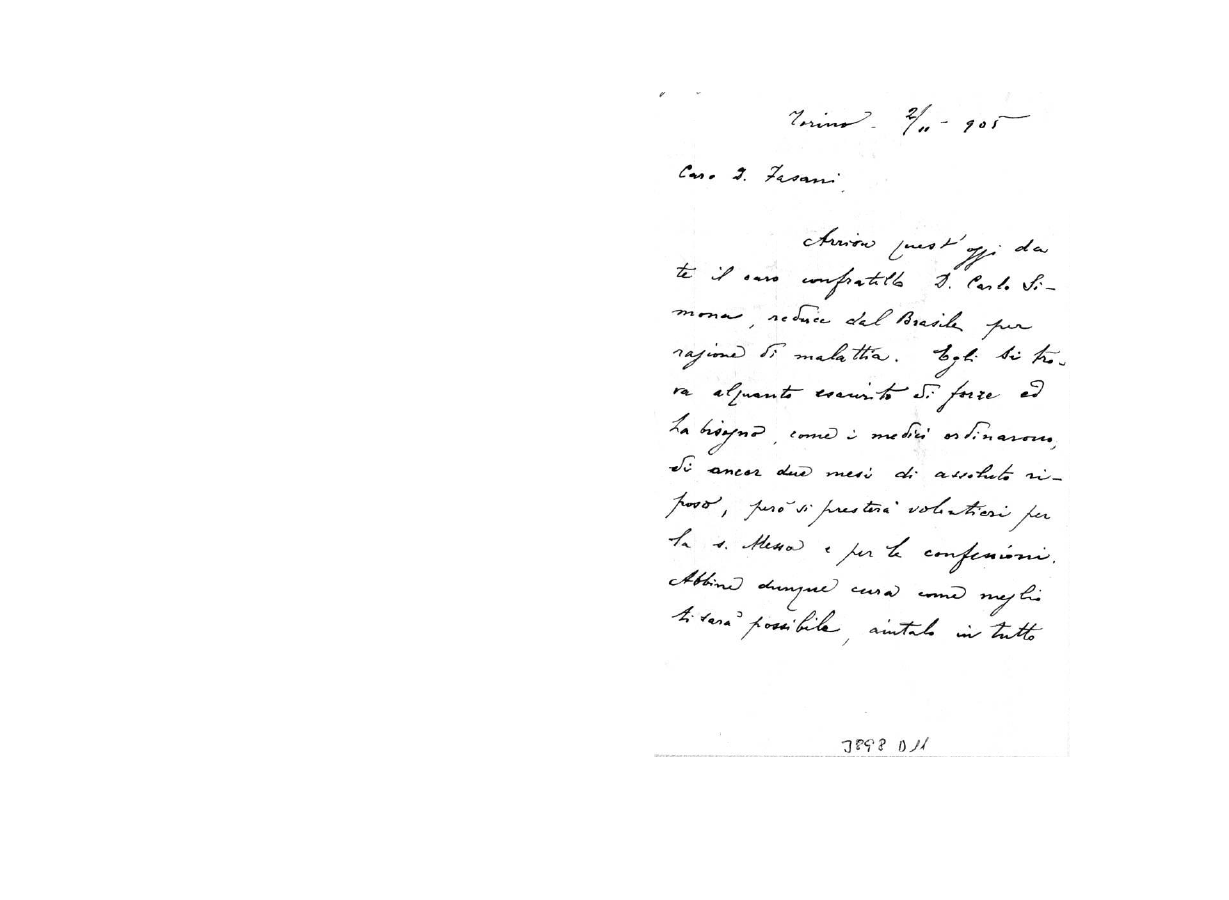 Torino - 2/11 - 905
Caro D. Fasani,
Arriva quest'oggi da
te il caro confratello D. Carlo Si-
mona, reduce dal Brasile per
ragione di malattia. Egli si tro-
va alquanto esaurito di forze ed
ha bisogno, come i medici ordinarono,
di ancor due mesi di assoluto ri-
poso, però si presterà volentieri per
la s. Messa e per le confessioni.
Abbine dunque cura come meglio
ti sarà possibile, aiutalo in tutto
3898 D11